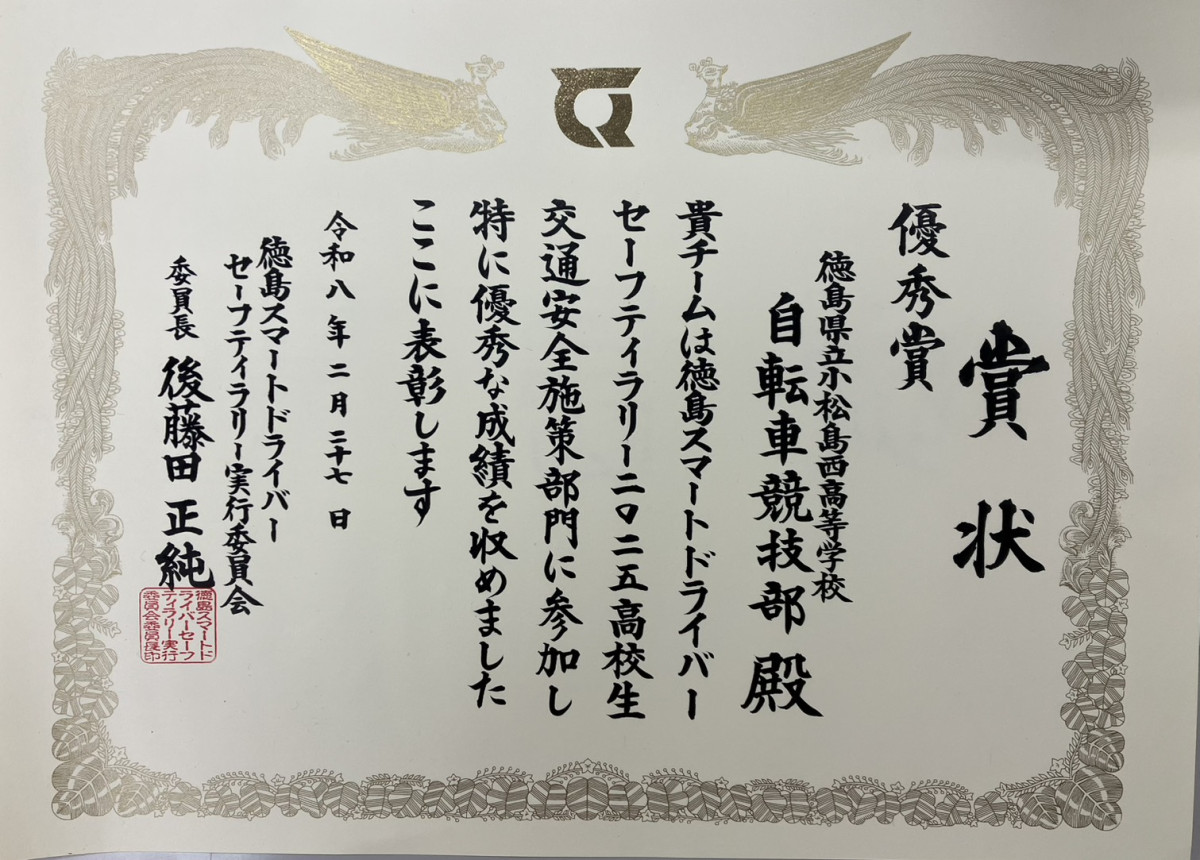 賞状
優秀賞
徳島県立小松島西高等学校
自転車競技部 殿
貴チームは徳島スマートドライバー
セーフティラリー二〇二五高校生
交通安全施策部門に参加し
特に優秀な成績を収めました
ここに表彰します
令和八年二月二十七日
徳島スマートドライバー
セーフティラリー実行委員会
委員長 後藤田 正純
徳島スマートド
ライバーセーフ
ティラリー実行
委員会委員長印